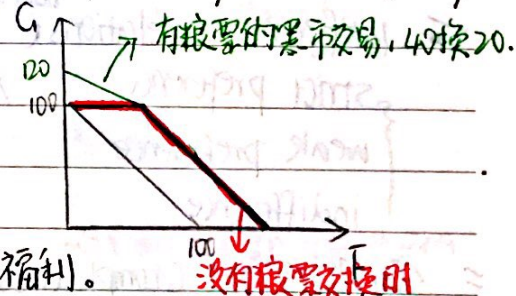 G
有粮票的黑市交易，40换20.
120
100
100
F
福利。
没有粮票交换时